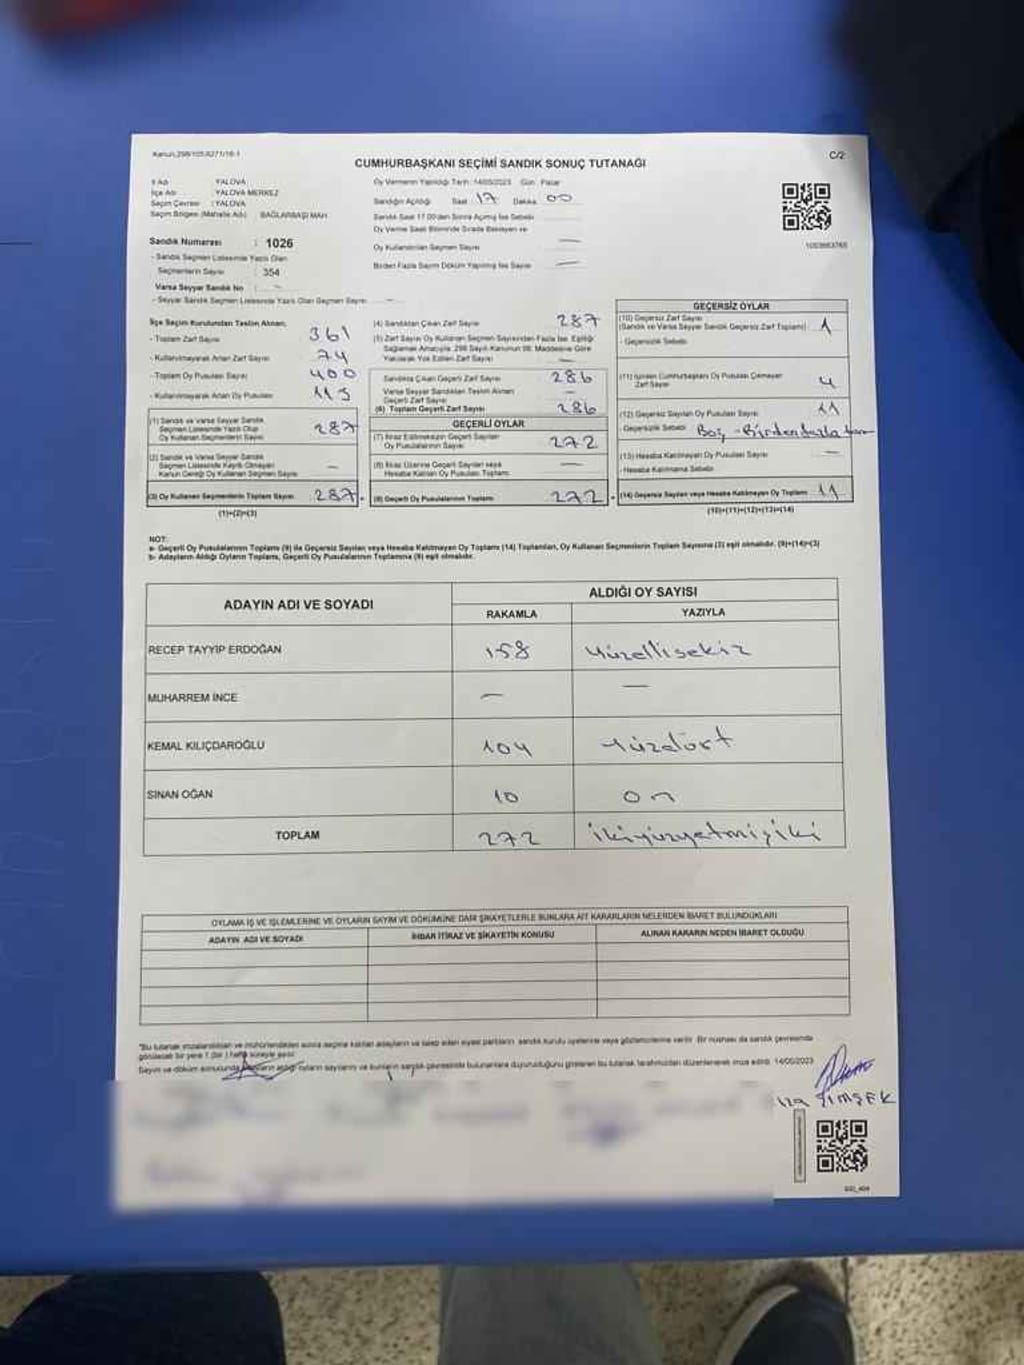 Kanun,298/105,6271/16-1
C/2
CUMHURBAŞKANI SEÇİMİ SANDIK SONUÇ TUTANAĞI
İl Adı : YALOVA
İlçe Adı : YALOVA MERKEZ
Seçim Çevresi : YALOVA
Seçim Bölgesi (Mahalle Adı) : BAĞLARBAŞI MAH.
Sandık Numarası : 1026
- Sandık Seçmen Listesinde Yazılı Olan
Seçmenlerin Sayısı : 354
Varsa Seyyar Sandık No : -
- Seyyar Sandık Seçmen Listesinde Yazılı Olan Seçmen Sayısı : -
Oy Vermenin Yapıldığı Tarih : 14/05/2023 Gün : Pazar
Sandığın Açıldığı Saat 17 Dakika 00
Sandık Saat 17.00'den Sonra Açılmış İse Sebebi
Oy Verme Saati Bitiminde Sırada Bekleyen ve
Oy Kullandırılan Seçmen Sayısı —
Birden Fazla Sayım Döküm Yapılmış İse Sayısı —
1053663765
İlçe Seçim Kurulundan Teslim Alınan;
- Toplam Zarf Sayısı 361
- Kullanılmayarak Artan Zarf Sayısı 74
- Toplam Oy Pusulası Sayısı 400
- Kullanılmayarak Artan Oy Pusulası 113
(1) Sandık ve Varsa Seyyar Sandık
Seçmen Listesinde Yazılı Olup
Oy Kullanan Seçmenlerin Sayısı 287
(2) Sandık ve Varsa Seyyar Sandık
Seçmen Listesinde Kayıtlı Olmayan
Kanun Gereği Oy Kullanan Seçmen Sayısı —
(3) Oy Kullanan Seçmenlerin Toplam Sayısı 287
(1)+(2)=(3)
(4) Sandıktan Çıkan Zarf Sayısı 287
(5) Zarf Sayısı Oy Kullanan Seçmen Sayısından Fazla İse, Eşitliği
Sağlamak Amacıyla, 298 Sayılı Kanunun 98. Maddesine Göre
Yakılarak Yok Edilen Zarf Sayısı —
Sandıkta Çıkan Geçerli Zarf Sayısı 286
Varsa Seyyar Sandıktan Teslim Alınan
Geçerli Zarf Sayısı —
(6) Toplam Geçerli Zarf Sayısı 286
GEÇERLİ OYLAR
(7) İtiraz Edilmeksizin Geçerli Sayılan
Oy Pusulalarının Sayısı 272
(8) İtiraz Üzerine Geçerli Sayılan veya
Hesaba Katılan Oy Pusulası Toplamı —
(9) Geçerli Oy Pusulalarının Toplamı 272
GEÇERSİZ OYLAR
(10) Geçersiz Zarf Sayısı
(Sandık ve Varsa Seyyar Sandık Geçersiz Zarf Toplamı) 1
- Geçersizlik Sebebi
(11) İçinden Cumhurbaşkanı Oy Pusulası Çıkmayan
Zarf Sayısı 4
(12) Geçersiz Sayılan Oy Pusulası Sayısı 11
- Geçersizlik Sebebi Boş - Birden fazla
(13) Hesaba Katılmayan Oy Pusulası Sayısı —
- Hesaba Katılmama Sebebi
(14) Geçersiz Sayılan veya Hesaba Katılmayan Oy Toplamı 11
(10)+(11)+(12)+(13)=(14)
NOT:
a- Geçerli Oy Pusulalarının Toplamı (9) ile Geçersiz Sayılan veya Hesaba Katılmayan Oy Toplamı (14) Toplamları, Oy Kullanan Seçmenlerin Toplam Sayısına (3) eşit olmalıdır. (9)+(14)=(3)
b- Adayların Aldığı Oyların Toplamı, Geçerli Oy Pusulalarının Toplamına (9) eşit olmalıdır.
ADAYIN ADI VE SOYADI
ALDIĞI OY SAYISI
RAKAMLA YAZIYLA
RECEP TAYYİP ERDOĞAN 158 Yüzellisekiz
MUHARREM İNCE — —
KEMAL KILIÇDAROĞLU 104 Yüzdört
SİNAN OĞAN 10 on
TOPLAM 272 ikiyüzyetmişiki
OYLAMA İŞ VE İŞLEMLERİNE VE OYLARIN SAYIM VE DÖKÜMÜNE DAİR ŞİKAYETLERLE BUNLARA AİT KARARLARIN NELERDEN İBARET BULUNDUKLARI
ADAYIN ADI VE SOYADI İHBAR İTİRAZ VE ŞİKAYETİN KONUSU ALINAN KARARIN NEDEN İBARET OLDUĞU
"Bu tutanak imzalandıktan ve mühürlendikten sonra seçime katılan adayların ve talep eden siyasi partilerin sandık kurulu üyelerine veya gözlemcilerine verilir. Bir nüshası da sandık çevresinde
görülecek bir yere 1 (bir) hafta süreyle asılır.
Sayım ve döküm sonucunda adayların aldığı oyların sayılarını ve bunların sandık çevresinde bulunanlara duyurulduğunu gösteren bu tutanak tarafımızdan düzenlenerek imza edildi. 14/05/2023
ŞİMŞEK